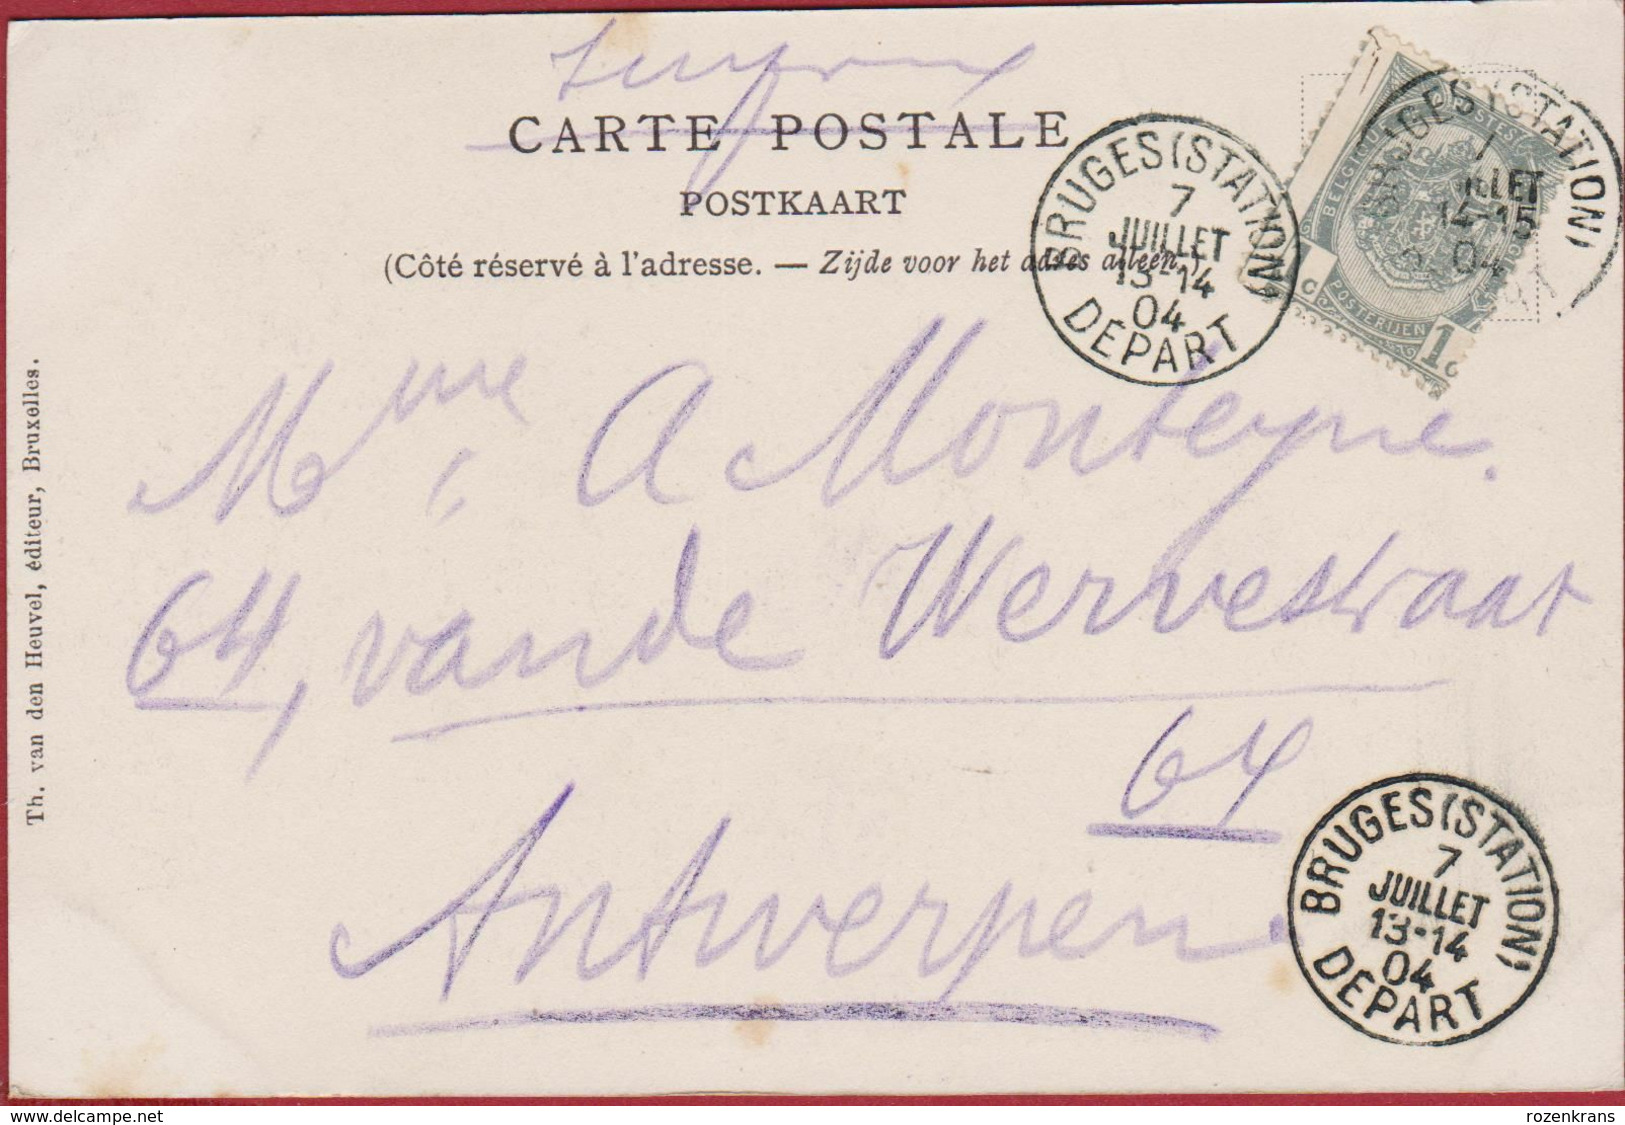 CARTE POSTALE
POSTKAART
(Côté réservé à l'adresse. — Zijde voor het adres alleen.)
BRUGES (STATION)
7
JUILLET
13-14
04
DEPART
BRUGES (STATION)
14-15
04
BELGIQUE
POSTERIJEN
1c
Mme A Monteyne.
64, van de Wervestraat
64
Antwerpen
BRUGES (STATION)
7
JUILLET
13-14
04
DEPART
Th. van den Heuvel, éditeur, Bruxelles.
www.delcampe.net
rozenkrans